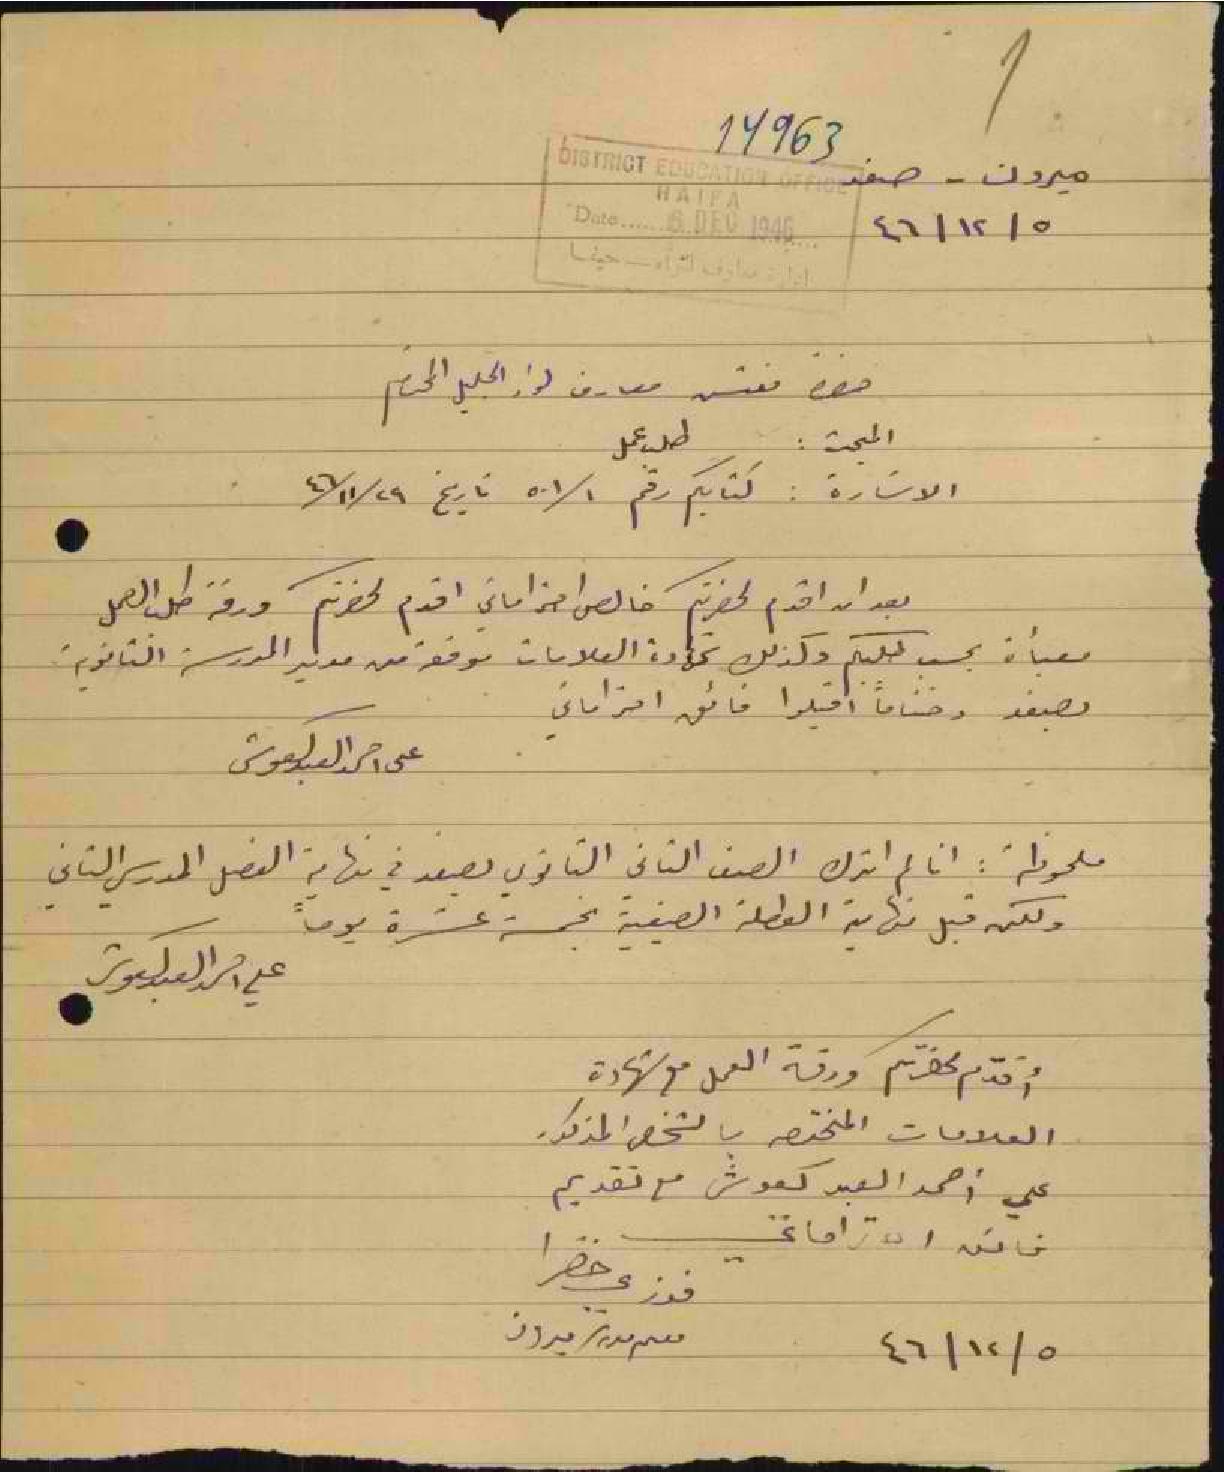 14963
DISTRICT EDUCATION OFFICE
HAIFA
Date...... 6 DEC 1946
ادارة معارف لواء حيفا
ميرون - صفد
٥ / ١٢ / ٤٦
حضرة مفتش معارف لواء الجليل المحترم
المبحث : طلب عمل
الاشارة : كتابكم رقم ٥٠١/١ تاريخ ٢٩/١١/٤٦
بعد ان اقدم لحضرتكم خالص احتراماتي اقدم لحضرتكم ورقة طلب العمل
معبأة بحسب طلبكم وكذلك شهادة العلامات موقعة من مدير المدرسة الثانوية
بصفد وختاماً اقبلوا فائق احتراماتي
علي احمد العبد كعوش
ملحوظة : انا لم اترك الصف الثاني الثانوي بصفد في نهاية الفصل المدرسي الثاني
ولكن قبل نهاية العطلة الصيفية بخمسة عشرة يوماً
علي احمد العبد كعوش
أقدم لحضرتكم ورقة العمل مع شهادة
العلامات المختصه بالشخص المذكور
علي أحمد العبد كعوش مع تقديم
فائق احتراماتي
فوزي خضرا
معلم مدرسة ميرون
٥ / ١٢ / ٤٦